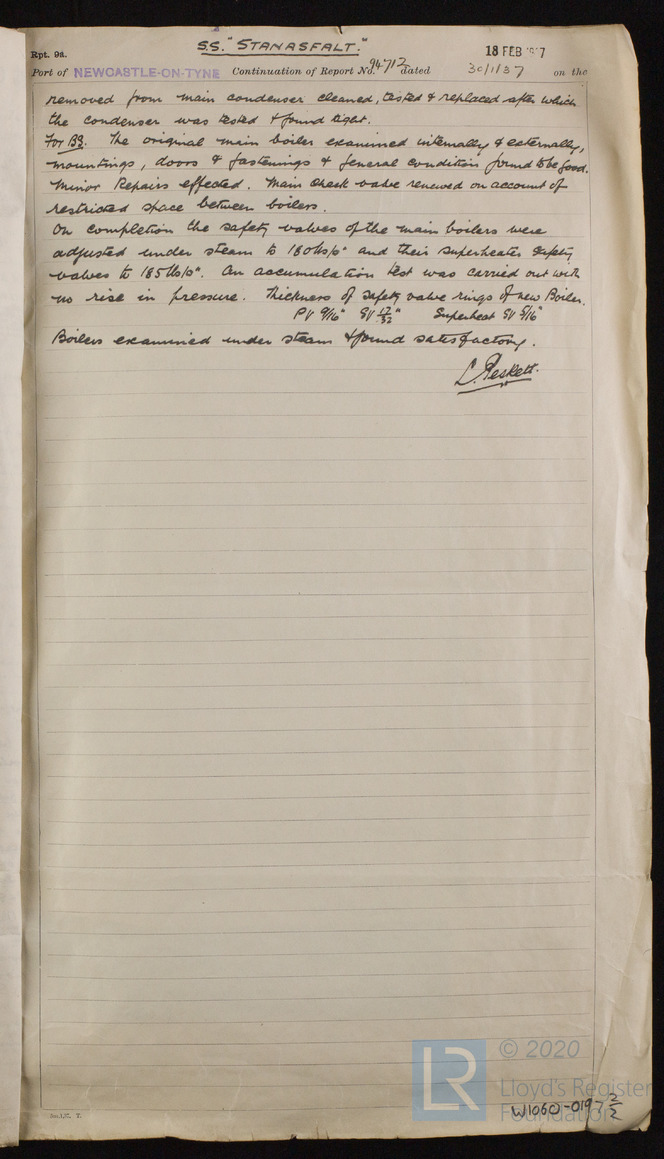 S.S. "STANASFALT."
Rpt. 9a.
18 FEB 1937
Port of NEWCASTLE-ON-TYNE Continuation of Report No. 94712 dated 30/1/37 on the
removed from main condenser cleaned, tested & replaced after which
the condenser was tested & found tight.
For BS. The original main boiler examined internally & externally,
mountings, doors & fastenings & general condition found to be good.
Minor Repairs effected. Main check valve renewed on account of
restricted space between boilers.
On completion the safety valves of the main boilers were
adjusted under steam to 180 lbs/□" and their superheater safety
valves to 185 lbs/□". An accumulation test was carried out with
no rise in pressure. Thickness of safety valve rings of new Boiler.
PV 9/16" SV 17/32" Superheat SV 5/16"
Boilers examined under steam & found satisfactory.
L. Peskett.
© 2020
LR
Lloyd's Register
Foundation
W1060-0197 2/2